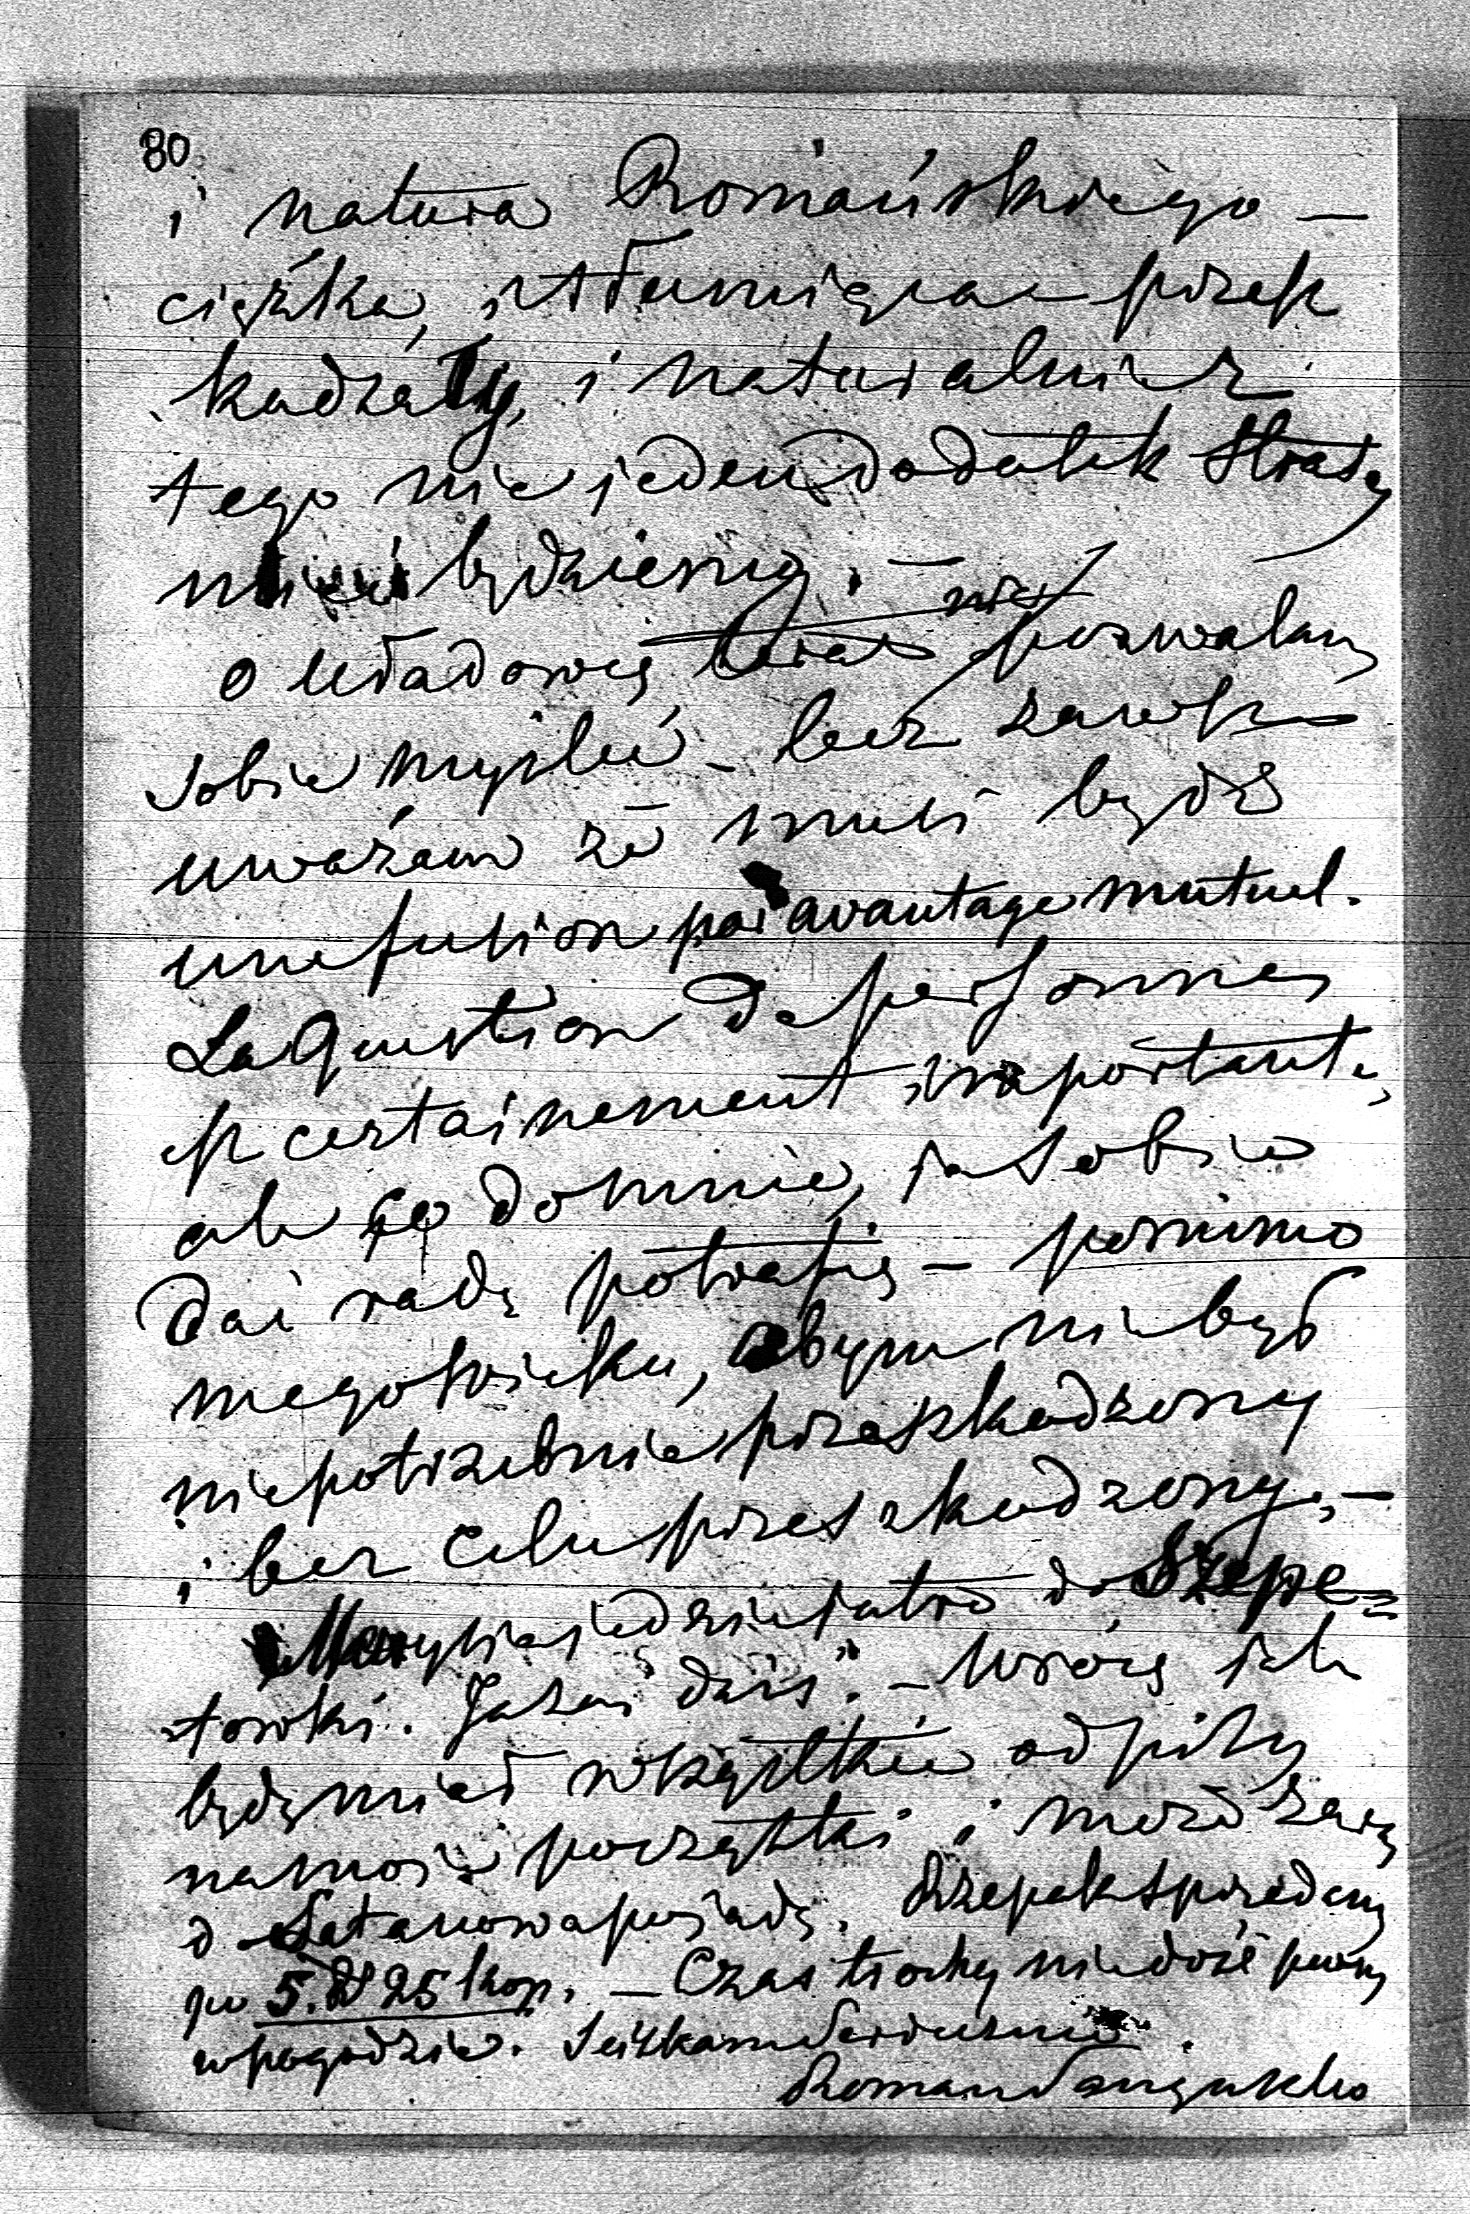 80
i natura Romańskiego —
ciężka, i tłumiąca — przesz
kadzały, i naturalnie z
tego nie jeden dodatek straty
mieć będziemy. —
o Uładowcę teraz nie pozwalam
sobie myśleć — lecz zawsze
uważam że musi bydź
une fusion par avantage mutuel.
La Question de personnes
est certainement importante,
ale co do mnie, ja sobie
dać radę potrafię — pomimo
mego wieku, abym nie był
niepotrzebnie przeszkadzony
i bez celu przeszkadzony. —
jedzie jutro do Szepe=
towki. Ja zaś dziś. — Wrócę jak
będę miał wszystkie odpisy
na moje początki i może zaraz
do Satanowa pojadę. Rzepak sprzedany
po 5. R 25 kop. — Czas trochę nie dość pewny
w pogodzie. Ściskam Serdecznie.
Roman Sanguszko